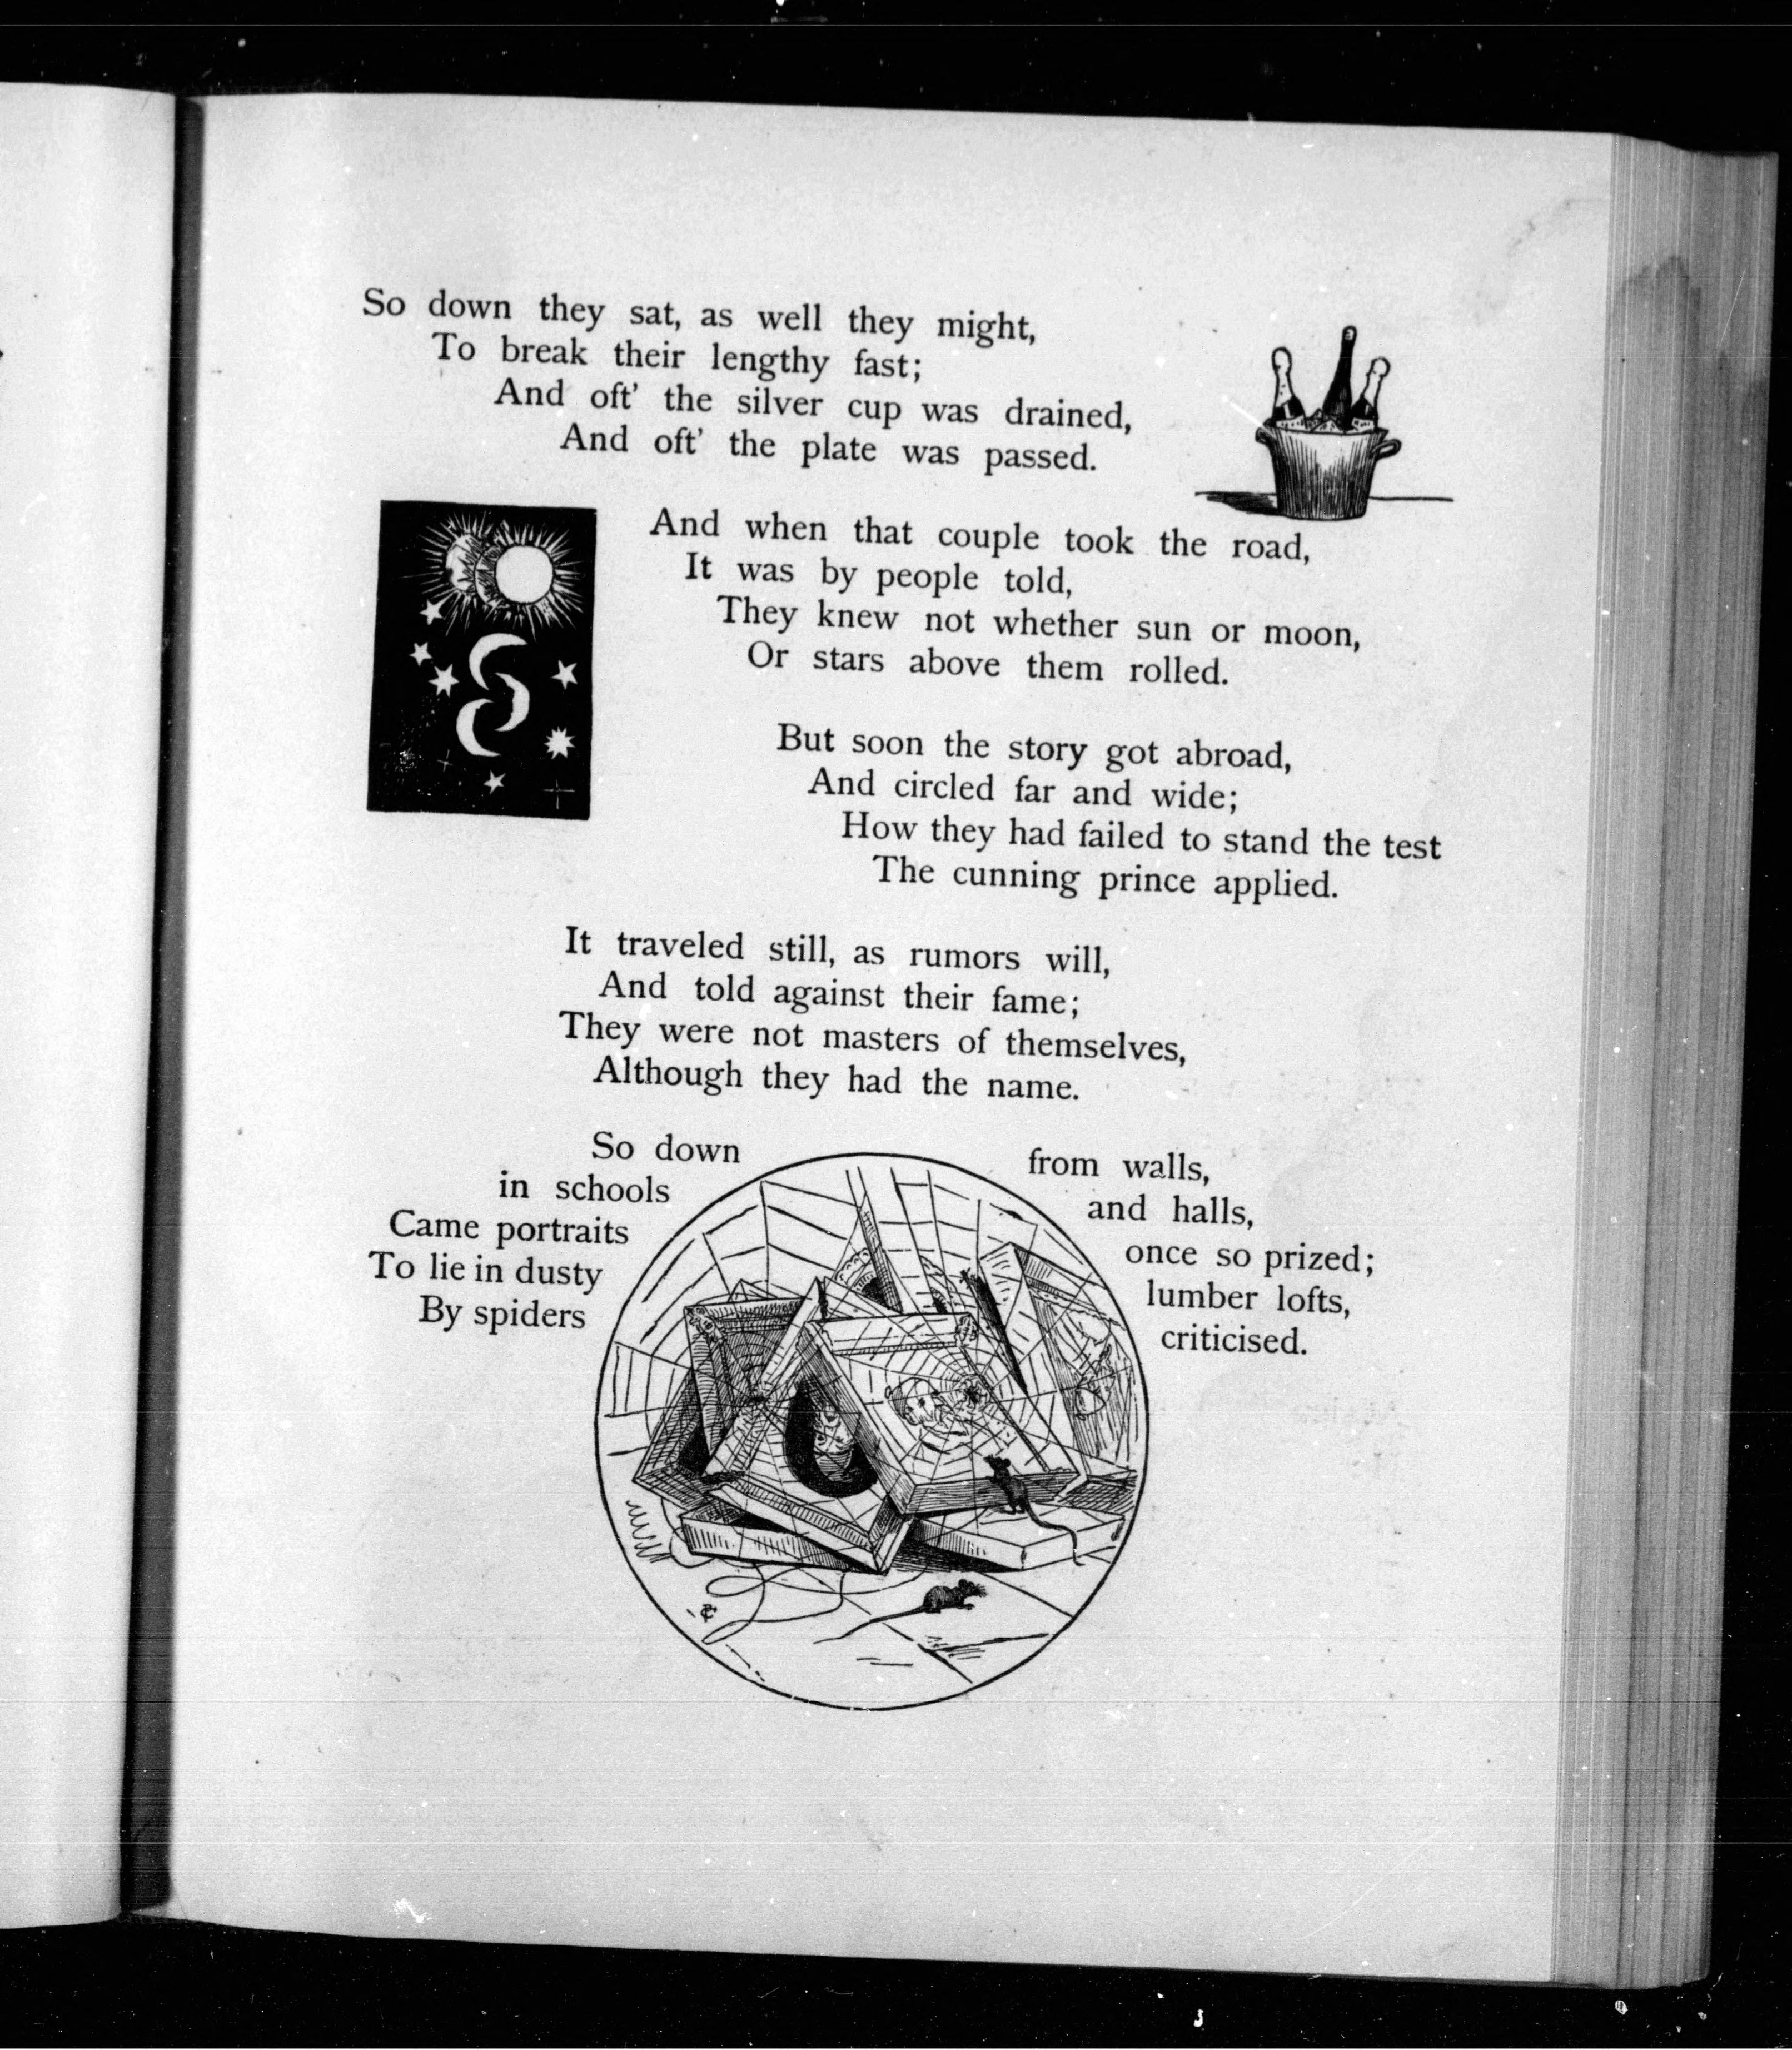 So down they sat, as well they might,
To break their lengthy fast;
And oft' the silver cup was drained,
And oft' the plate was passed.
And when that couple took the road,
It was by people told,
They knew not whether sun or moon,
Or stars above them rolled.
But soon the story got abroad,
And circled far and wide;
How they had failed to stand the test
The cunning prince applied.
It traveled still, as rumors will,
And told against their fame;
They were not masters of themselves,
Although they had the name.
So down from walls,
in schools and halls,
Came portraits once so prized;
To lie in dusty lumber lofts,
By spiders criticised.